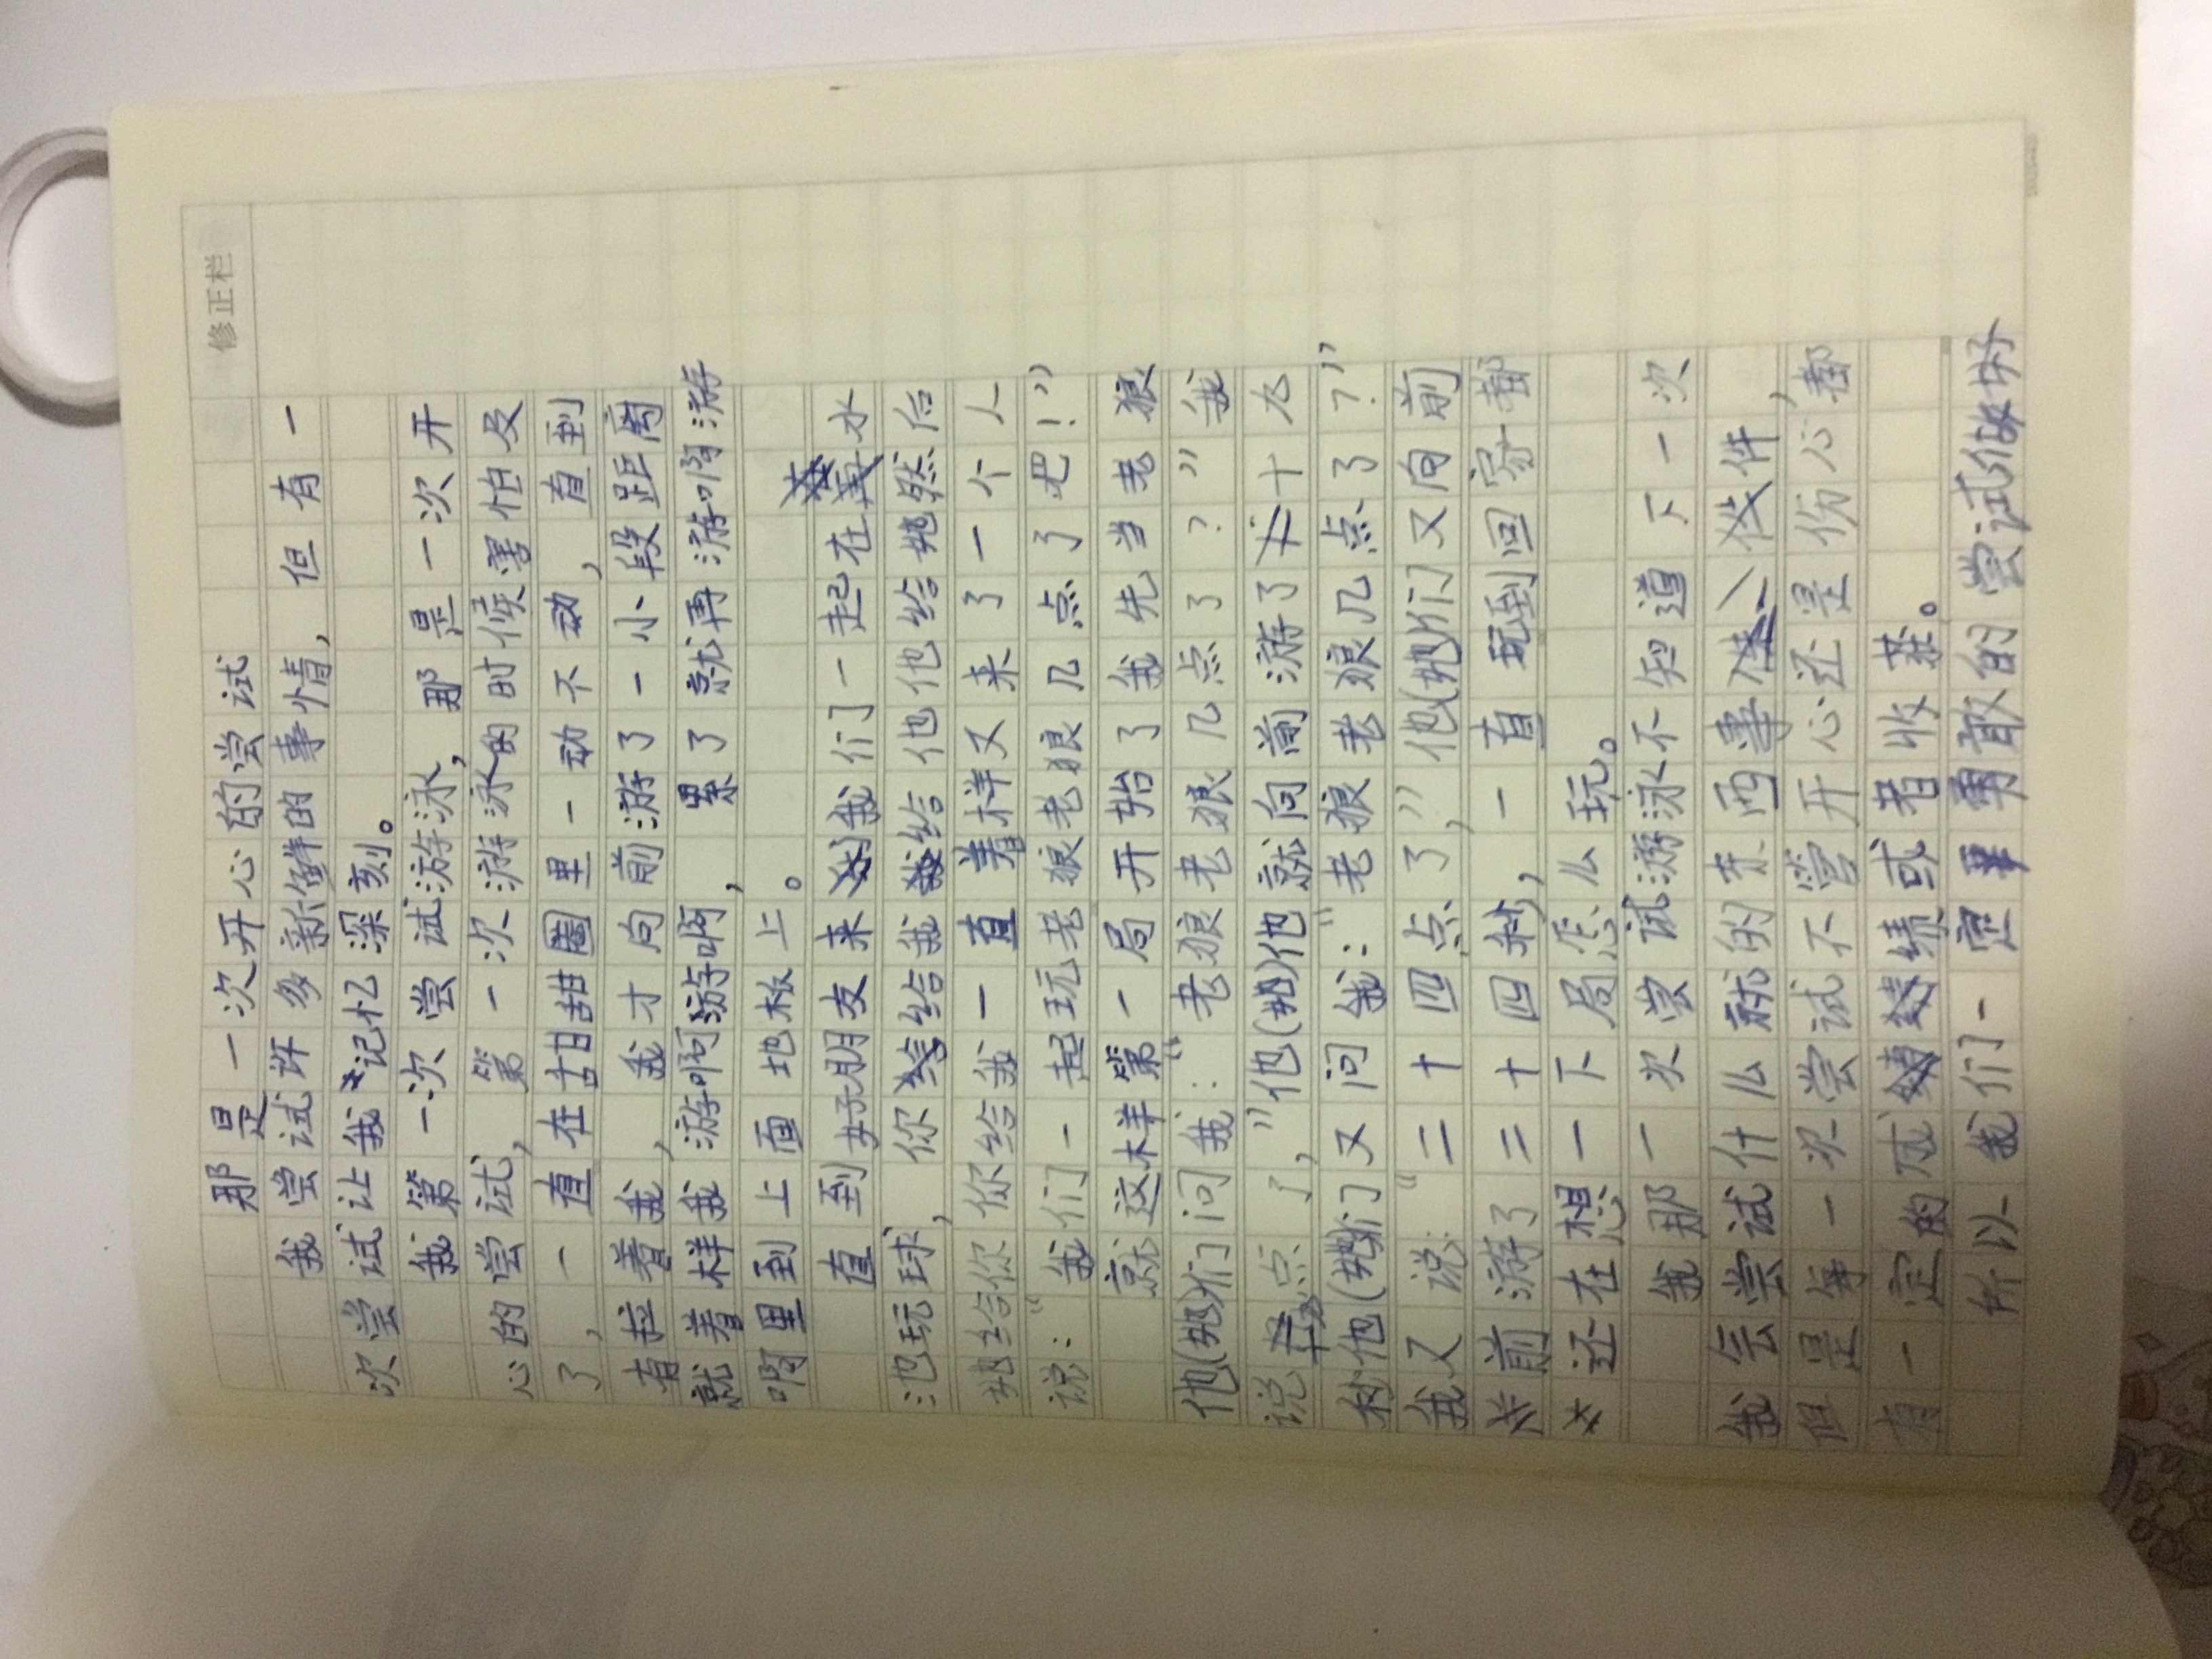 修正栏
那是一次开心的尝试
我尝试许多新鲜的事情，但有一
次尝试让我记忆深刻。
我第一次尝试游泳，那是一次开
心的尝试，第一次游泳的时候害怕及
了，一直在甜甜圈里一动不动，直到
有拉着我，我才向前游了一小段距离
就着样我游啊游啊，累了就再游啊游
啊里到上面地板上。
直到好朋友来我们一起在水
池玩球，你给我给他他给她然后
她给你你给我一直着样又来了一个人
说：“我们一起玩老狼老狼几点了吧！”
就这样第一局开始了我先当老狼
他(她)们问我：“老狼老狼几点了？”我
说 点了，”他(她)他就向前游了十九
秒他(她)们又问我：“老狼老狼几点了？”
我又说：“二十四点了，”他(她)们又向前
前游了二十四秒，一直玩到回家都
还在想一下局怎么玩。
我那一次尝试游泳不知道下一次
我会尝试什么新的东西事件，
但是每一次尝试不管开心还是伤心都
有一定的成绩或者收获。
所以我们一定勇敢的尝试做好